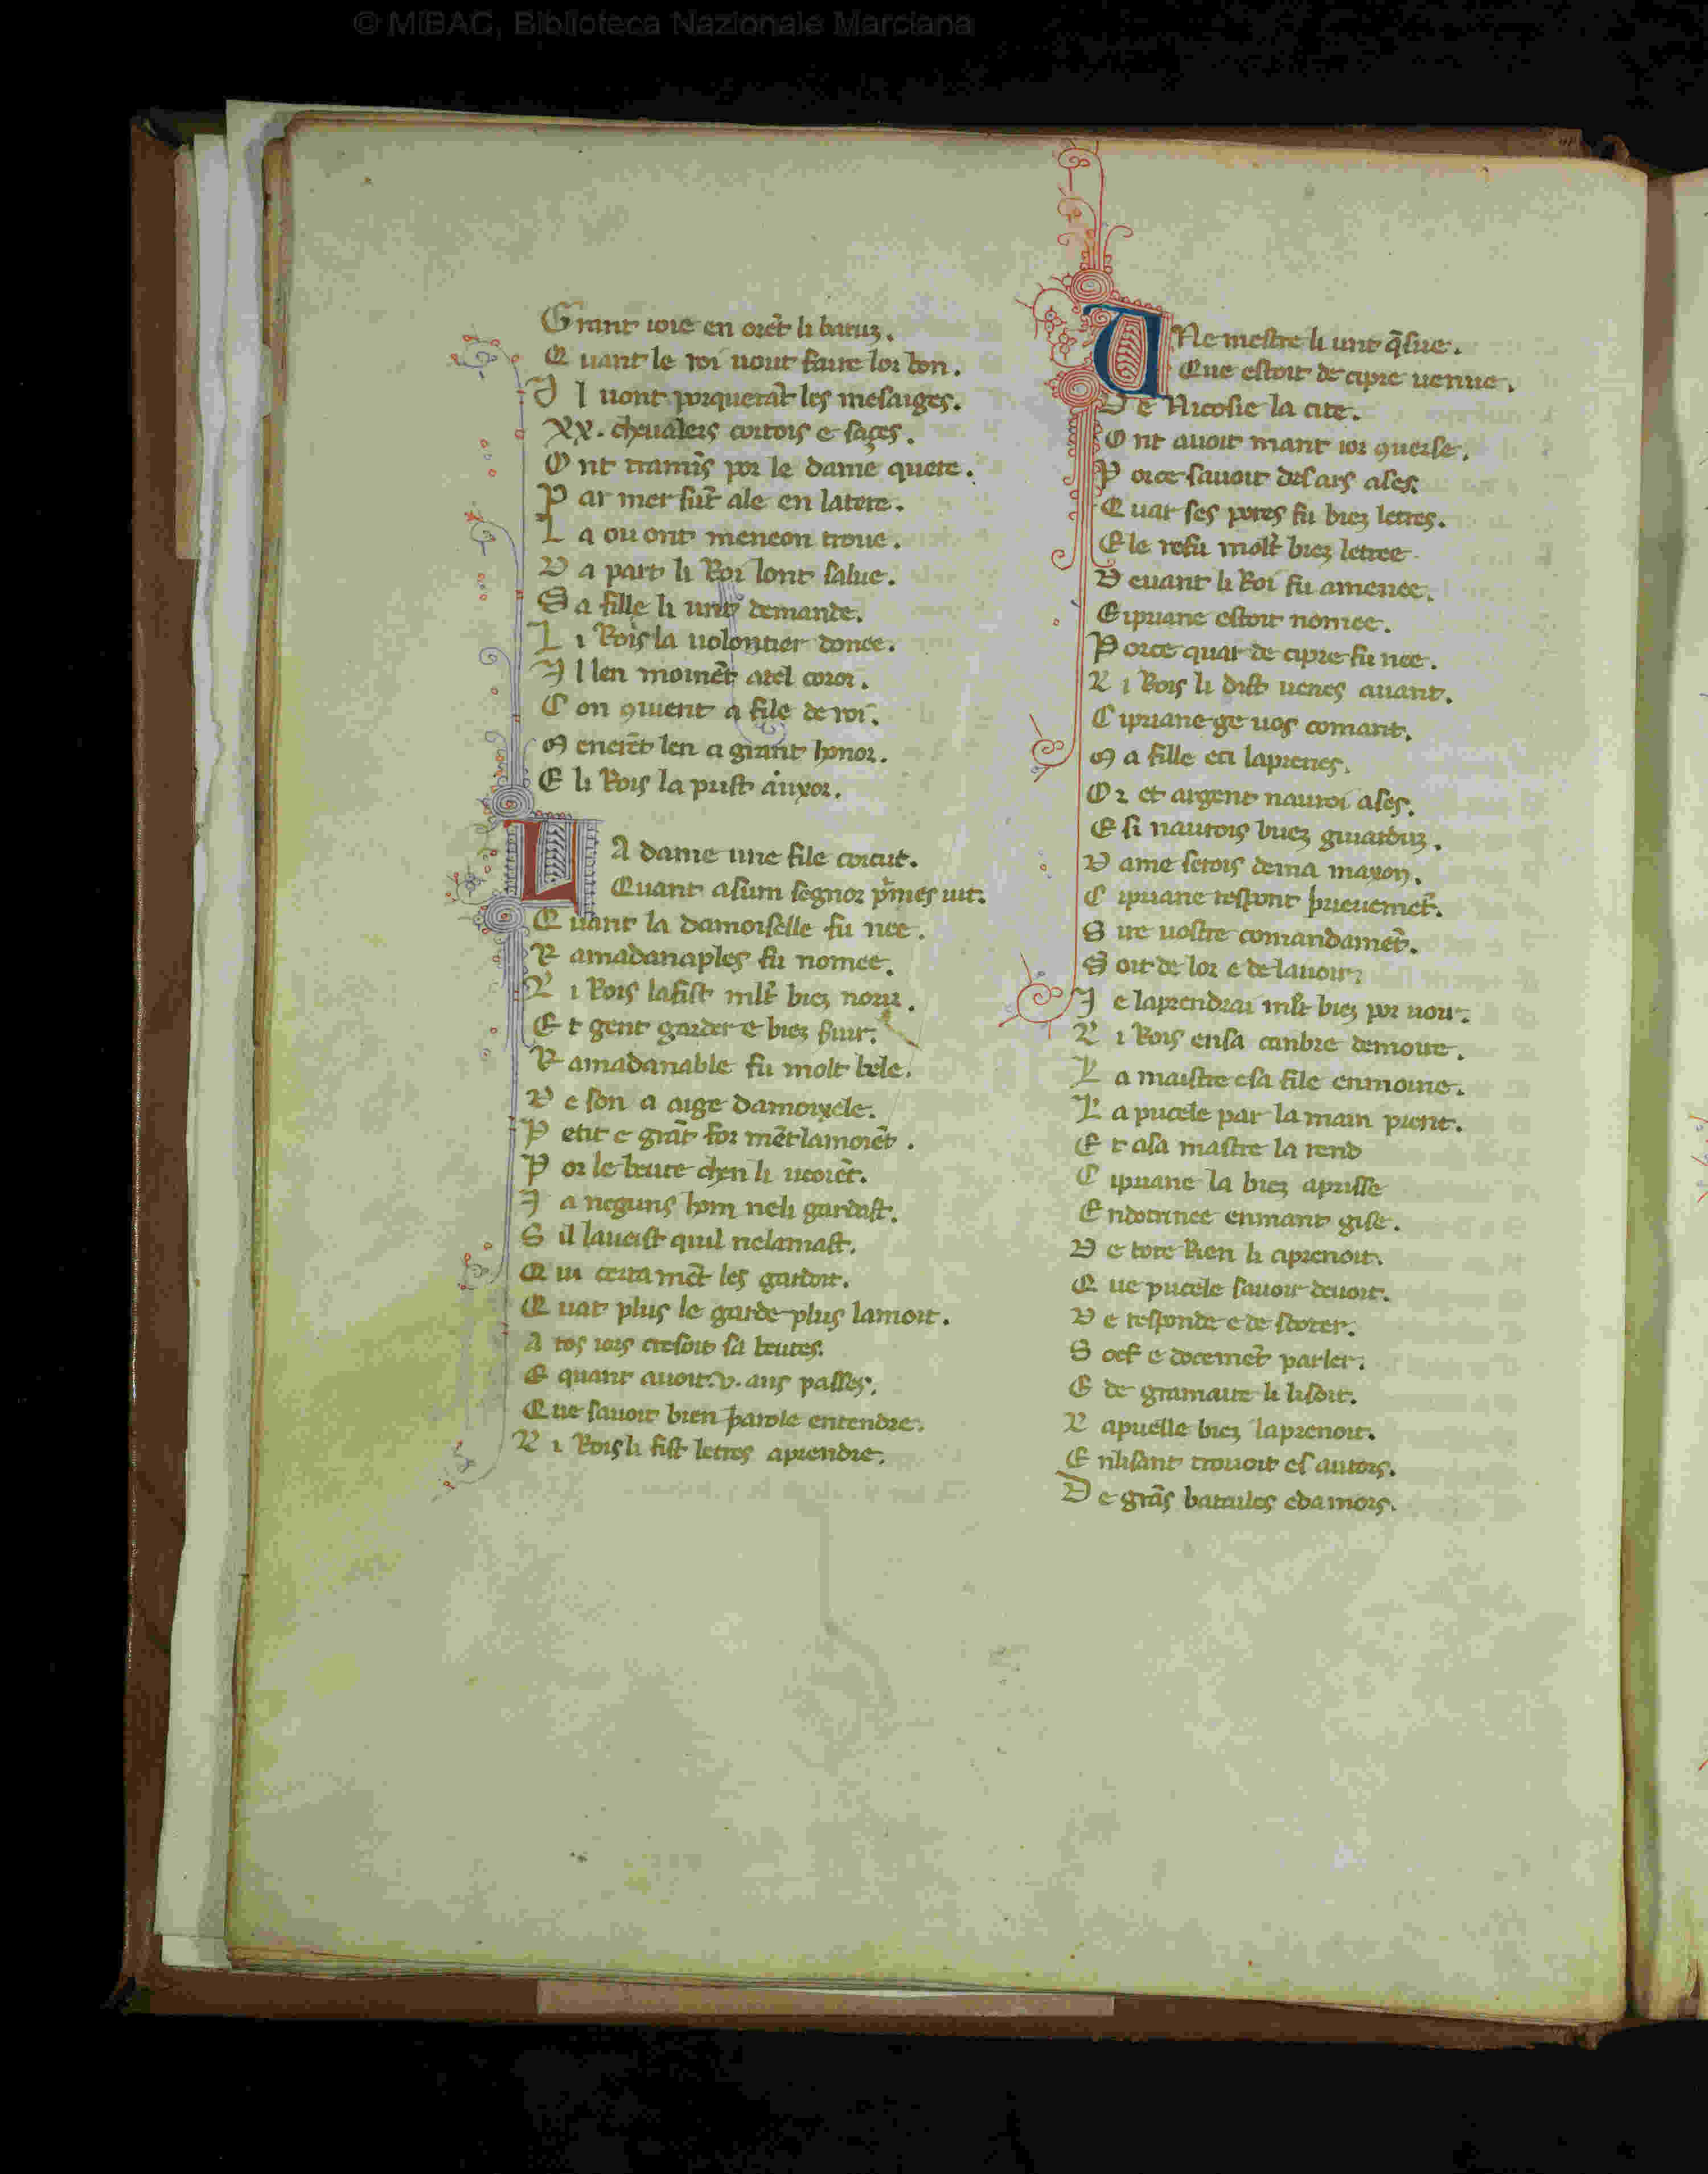 © MiBAC, Biblioteca Nazionale Marciana
Grant ioie en orēt li baruz.
Quant le roi uout faire loi bon.
Il uont porquerāt les mesaiges.
XX. cheualers cortois e sages.
Ont tramis por le dame quere.
Par mer sūt ale en latere.
La ou ont meneon troue.
Da part li Roi lont salue.
Sa fille li unt demande.
Li Rois la uolontier donee.
Il len moinēt atel coroi.
Con ꝯuient a file de roi.
Menerēt len a grant honor.
E li Rois la prist a uxor.
LA dame une file concut.
Quant asum segnor pmes uit.
Quant la damoiselle fu nee.
Ramadanaples fu nomee.
Li Rois lafist mlt biez norir.
Et gent garder e biez suir.
Ramadanable fu molt bele.
De son a aige damoixele.
Petit e grāt for mēt lamoiēt.
Por le beute chen li ueoiēt.
Ia neguns hom neli gardast.
Sil laueist quil nelamast.
Qui certa mēt les gardoit.
Quat plus le garde plus lamoit.
A tos iors cresoit sa beutes.
E quant auoit .v. ans passes.
Que sauoit bien parole entendre.
Li Rois li fist letres aprendre.
UNe mestre li unt q̄sue.
Que estoit de cipre uenue.
De Nicosie la cite.
Ont auoit mant ior ꝯuerse.
Porce sauoit des ars ases.
Quar ses peres fu biez letres.
Ele refu molt biez letree.
Deuant li Roi fu amenee.
Cipriane estoit nomee.
Porce quar de cipre fu nee.
Li Rois li dist uenes auant.
Cipriane ge uos comant.
Ma fille eci laprenes.
Or et argent nauroi ases.
E si naurois biez guiarduz.
Dame serois dema maxon.
Cipriane respont brieuemēt.
Sire uostre comandamēt.
Soit de lor e de lauoir.
Ie laprendrai mlt biez por uoir.
Li Rois ensa canbre demore.
La maistre esa file enmoine.
La pucele par la main prent.
Et asa mastre la rend
Cipriane la biez aprisse
Endotrinee enmant gise.
De tote Rien li aprenoit.
Que pucele sauoir deuoit.
De responde e de scoter.
Soef e docemēt parler.
E de gramaire li lisoit.
Lapuelle biez laprenoit.
Enlisant trouoit es autors.
De grās batailes edamors.